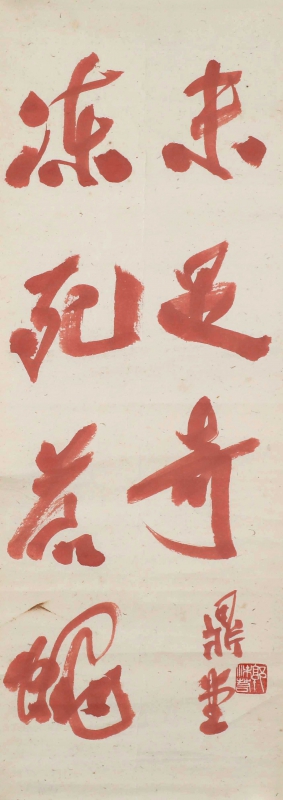 冻死苍蝇
未足奇
鼎堂
郭沫若